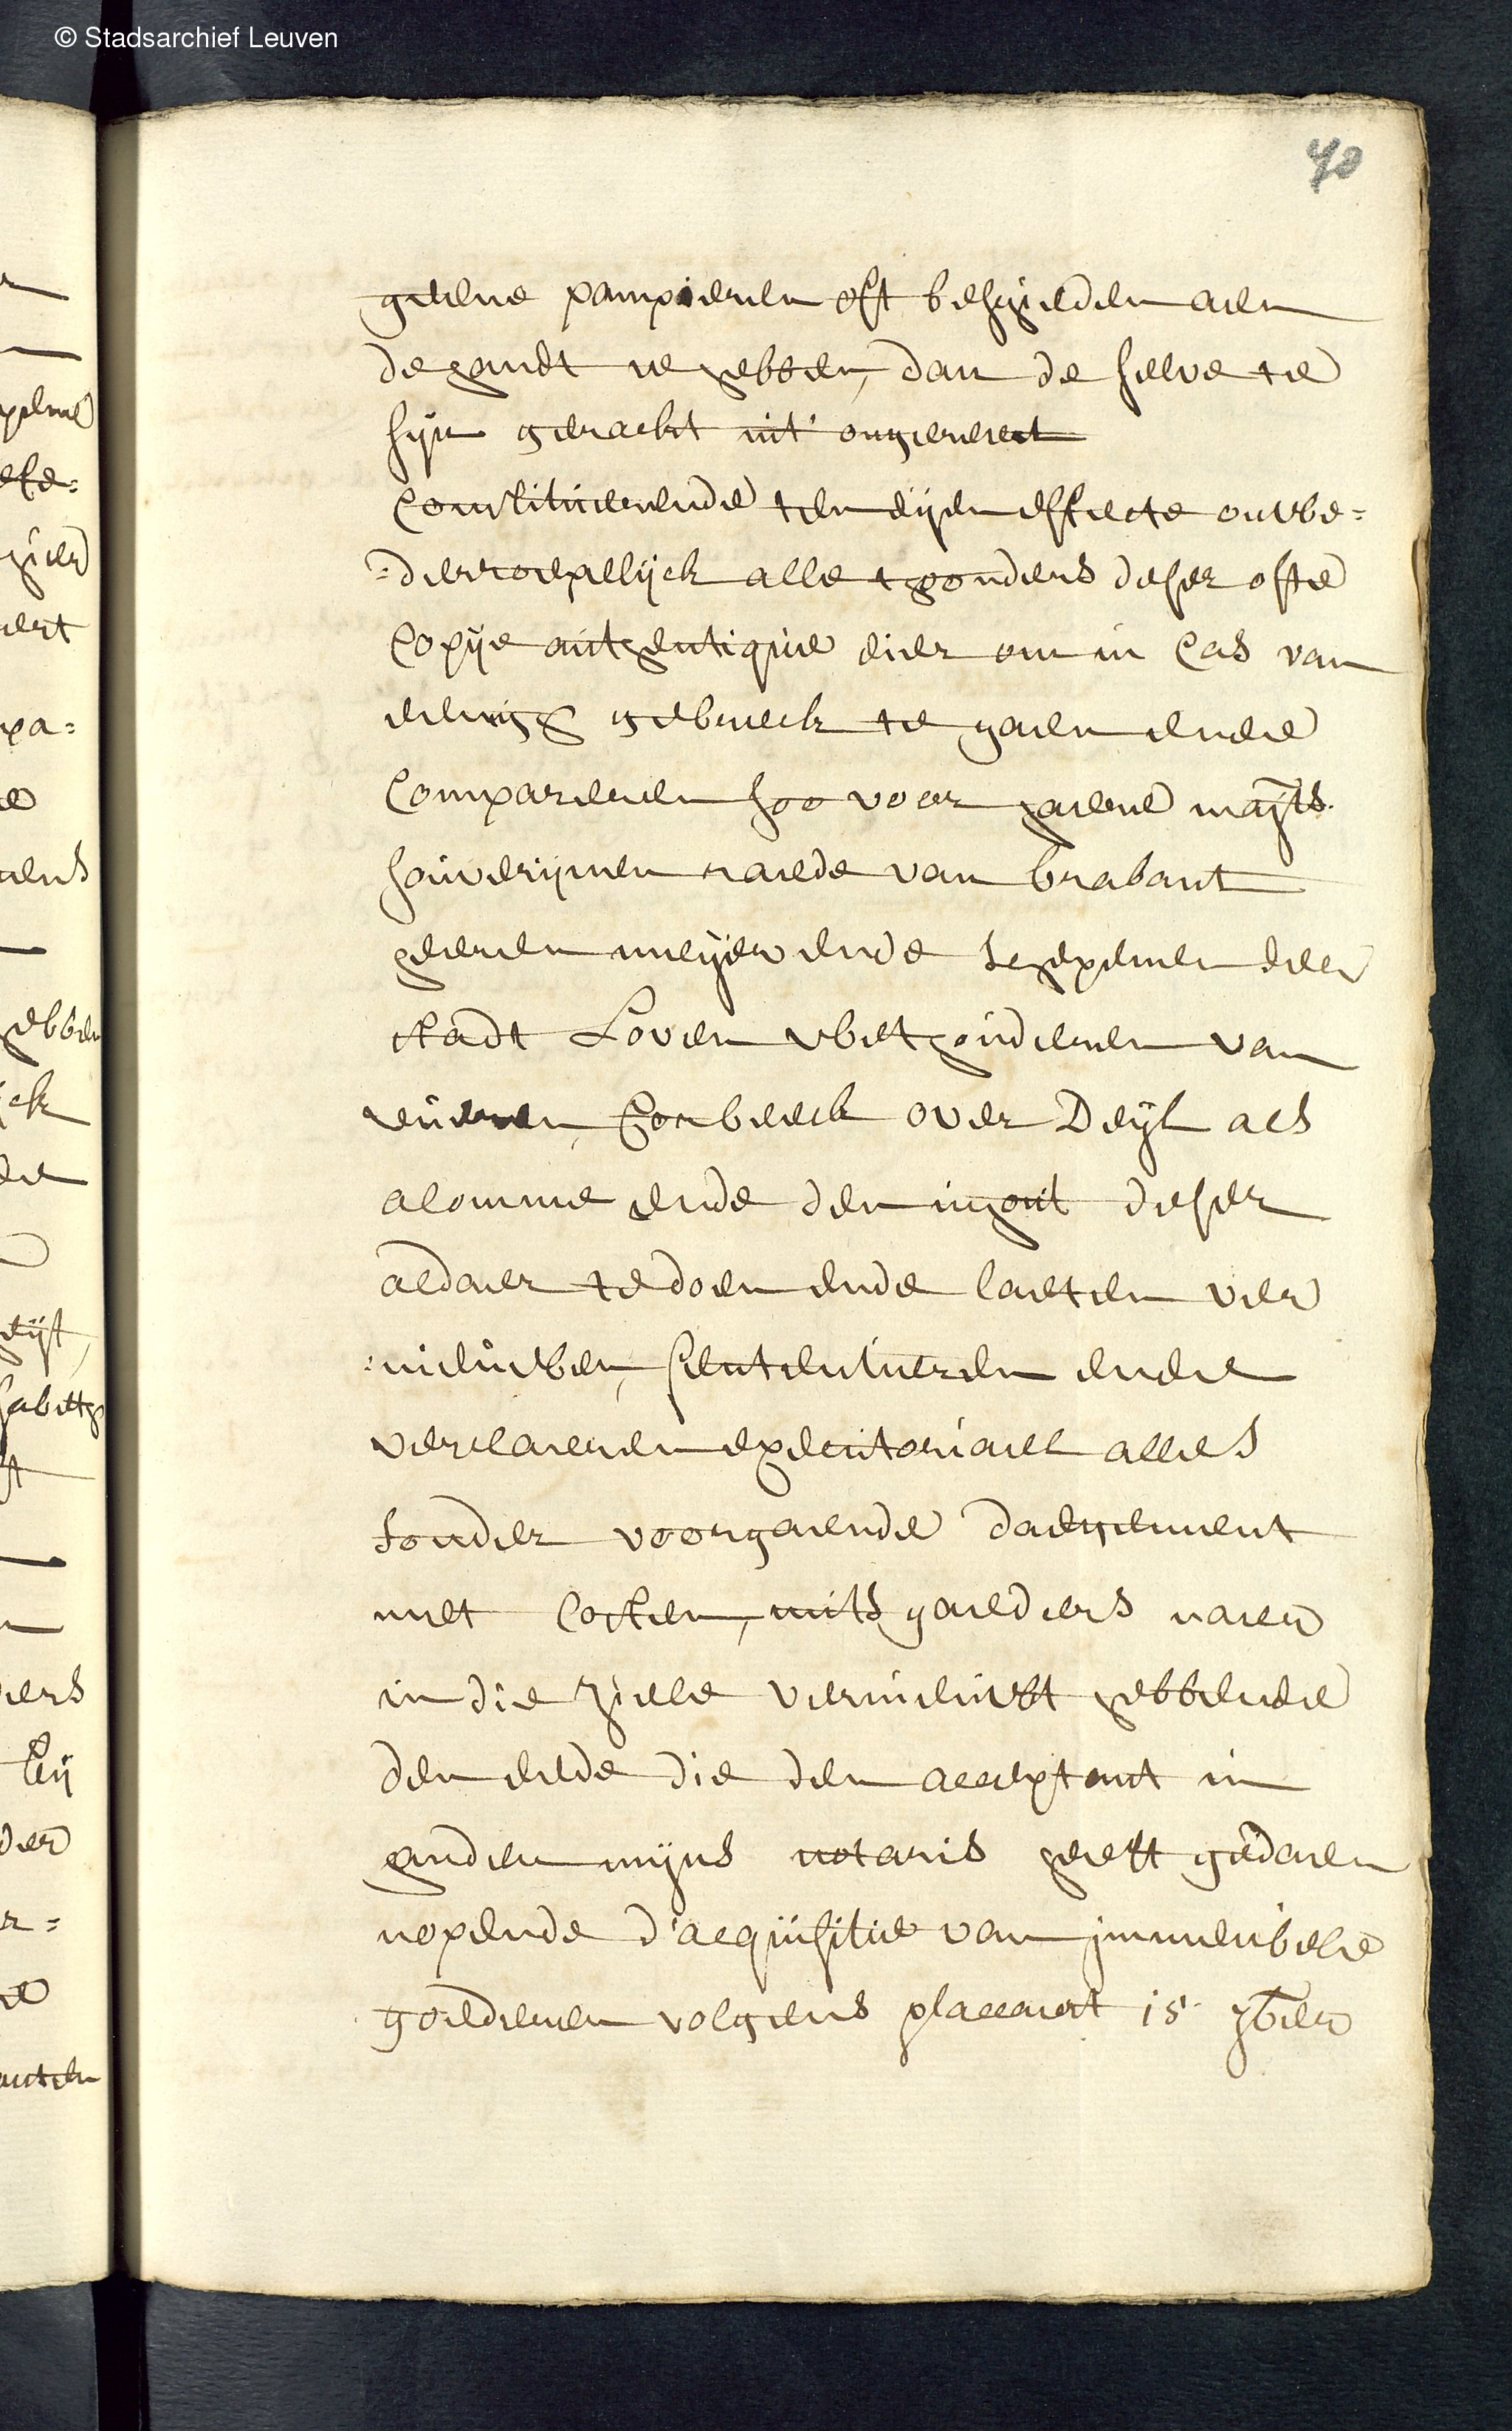 © Stadsarchief Leuven
40
geene pampieren oft bescheeden aen
de handt te hebben, dan de selve te
sijn geraeckt uit ongereet
Constituerende ten dijen effecte onwe=
=derroepelijck alle thoonders deser ofte
Copije authentique dier om in Cas van
eenigh gebreck te gaen ende
Compareren soo voor haere majts.
souverijnen raede van brabant
heeren meijer ende schepenen deer
stadt Loven wethouderen van
Corbeeck over Deijl als
alomme ende den inhout deser
aldaer te doen ende laeten ver
:nieuwen, sententieren ende
verclaeren executoriael alles
sonder voorgaende daegement
met Costen, mitsgaeders naer
in die ziele vernieuwt hebbende
den eede die den acceptant in
handen mijns notaris heeft gedaen
nopende d'acquisitie van immeubele
goederen volgens placcaert 15 7ber